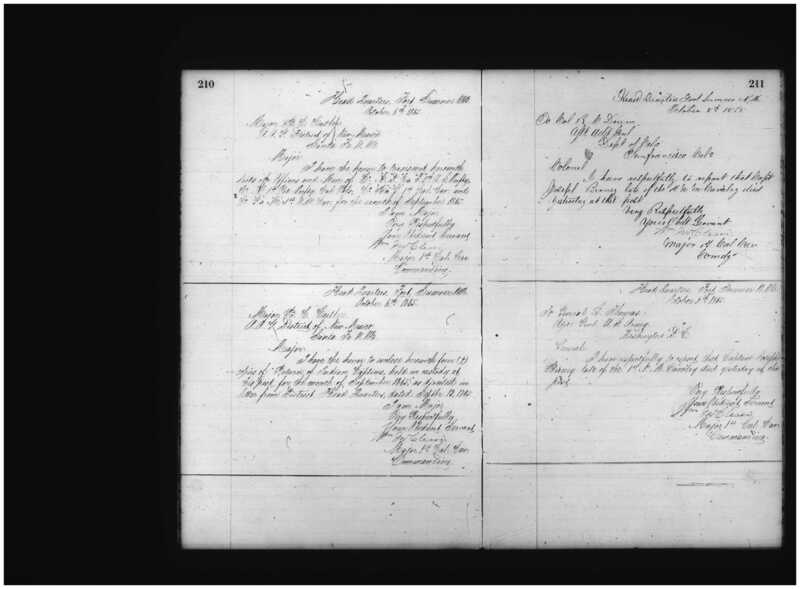 210
Head Quarters, Fort Sumner N.M.
October 6th 1865
Major
A.A.G. District of New Mexico
Santa Fe N.M.
Major
I have the honor to transmit herewith
of Officers and Men of Co.
Cal. and
for the month of September 1865
I am Major
Very Respectfully
Your Obedient Servant
Wm McCleave
Major 1st Cal. Cav.
Commanding.
Head Quarters, Fort Sumner N.M.
October 6th 1865.
Major
A.A.G. District of New Mexico
Santa Fe N.M.
Major
I have the honor to enclose herewith four (4)
of Returns of Indian Captives, held in custody at
this post for the month of September 1865, as directed in
letter from District Head Quarters, dated Septbr 12, 1865
I am Major
Very Respectfully
Your Obedient Servant
Wm McCleave
Major 1st Cal. Cav.
Commanding.
211
Head Quarters Fort Sumner N.M.
October 1865
To Col R. C. Drum
Asst Adjt Genl
Dept of
San Francisco Cala
Colonel
I have respectfully to report that Capt
late of the Cavalry died
yesterday at this post
Very Respectfully
Your Obt Servant
Wm McCleave
Major 1st Cal Cav
Comdg
Head Quarters Fort Sumner N.M.
October 1865
To General L. Thomas
Adjt Genl U.S. Army
Washington D.C.
General
I have respectfully to report that Captain
late of the 1st N.M. Cavalry died yesterday at this
post
Very Respectfully
Your Obedient Servant
Wm McCleave
Major 1st Cal. Cav.
Commanding.